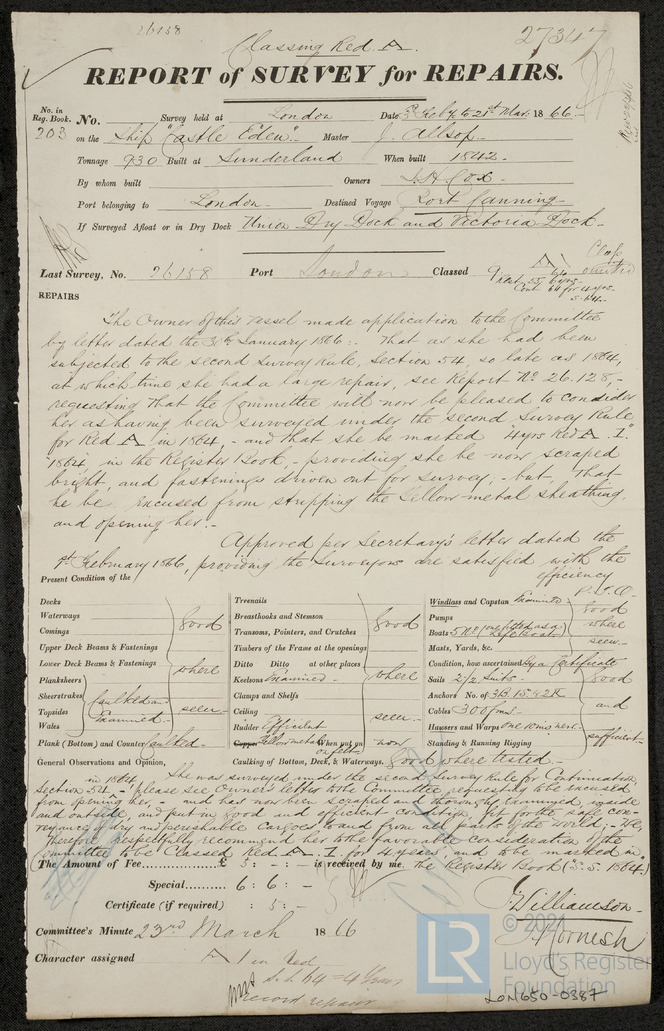 26158
27347
Classing Red A.
REPORT of SURVEY for REPAIRS.
No. in Reg. Book. No. Survey held at London Date 5th Feby to 21st Mar. 1866.
203 on the Ship "Castle Eden" Master J. Allsop
Tonnage 930 Built at Sunderland When built 1842.
By whom built Owners Cox
Port belonging to London Destined Voyage Port Canning
If Surveyed Afloat or in Dry Dock Union Dry Dock and Victoria Dock.
Last Survey, No. 26158 Port London Classed
REPAIRS
The Owner of this vessel made application to the Committee
by letter dated the 30th January 1866:- That as she had been
subjected to the second survey Rule, Section 54, so late as 1864,
at which time she had a large repair, see Report No. 26.128,-
requesting that the Committee will now be pleased to consider
her as having been surveyed under the second Survey Rule
for Red A in 1864, - and that she be marked "4 yrs Red A. 1."
"1864" in the Register Book, - providing she be now scraped
bright, and fastenings driven out for survey, - but, That
he be, excused from stripping the yellow metal sheathing,
and opening her.-
Approved per Secretary's letter dated the
February 1866, providing the Surveyors are satisfied with the
efficiency
P.T.O.
Present Condition of the
Decks
Waterways
Comings
Upper Deck Beams & Fastenings
Lower Deck Beams & Fastenings
Planksheers
Sheerstrakes
Topsides
Wales
Caulked
Examined
good where seen
Plank (Bottom) and Counter Caulked
Treenails
Breasthooks and Stemson
Transoms, Pointers, and Crutches
Timbers of the Frame at the openings
Ditto Ditto at other places
Keelsons Examined
Clamps and Shelfs
Ceiling
Rudder Efficient
Copper Yellow metal When put on now
on felt
good where seen
Windlass and Capstan Examined
Pumps
Boats
Masts, Yards, &c.
good where seen
Condition, how ascertained By a Certificate
Sails 2/2 Suits
Anchors No. of 3B. 1S. & 2K
Cables 300 fms
Hawsers and Warps
Standing & Running Rigging
good and sufficient
General Observations and Opinion,
Caulking of Bottom, Deck, & Waterways. Good where tested
She was surveyed under the second Survey Rule for Continuation,
in 1864
Section 54, - please see Owner's letter to the Committee requesting to be excused
from opening her, - and has now been scraped and thoroughly examined, inside
and outside, and put in good and efficient condition, fit for the safe con-
veyance of dry and perishable Cargoes to and from all parts of the World; - We,
therefore respectfully recommend her to the favorable consideration of the
Committee to be Classed Red A. 1. for 4 years, and to be marked in
The Amount of Fee £ 5 : - : - is received by me. the Register Book ("S.S. 1864")
Special 6 : 6 : -
Certificate (if required) : 5 : -
Williamson
Cornish
Committee's Minute 23rd March 1866
Character assigned A 1 in Red
S.S. 64 = 4 Years
record repairs
© 2021
LR
Lloyd's Register
Foundation
LON650-0387